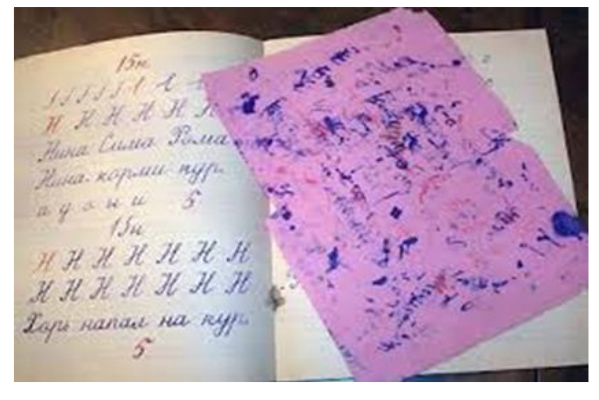 15н
Н Н Н Н Н Н
Нина Сима Рома
Нина корми кур.
а у о ы и 5
15н
Н Н Н Н Н Н Н
Н Н Н Н Н Н Н
Хорь напал на кур.
5